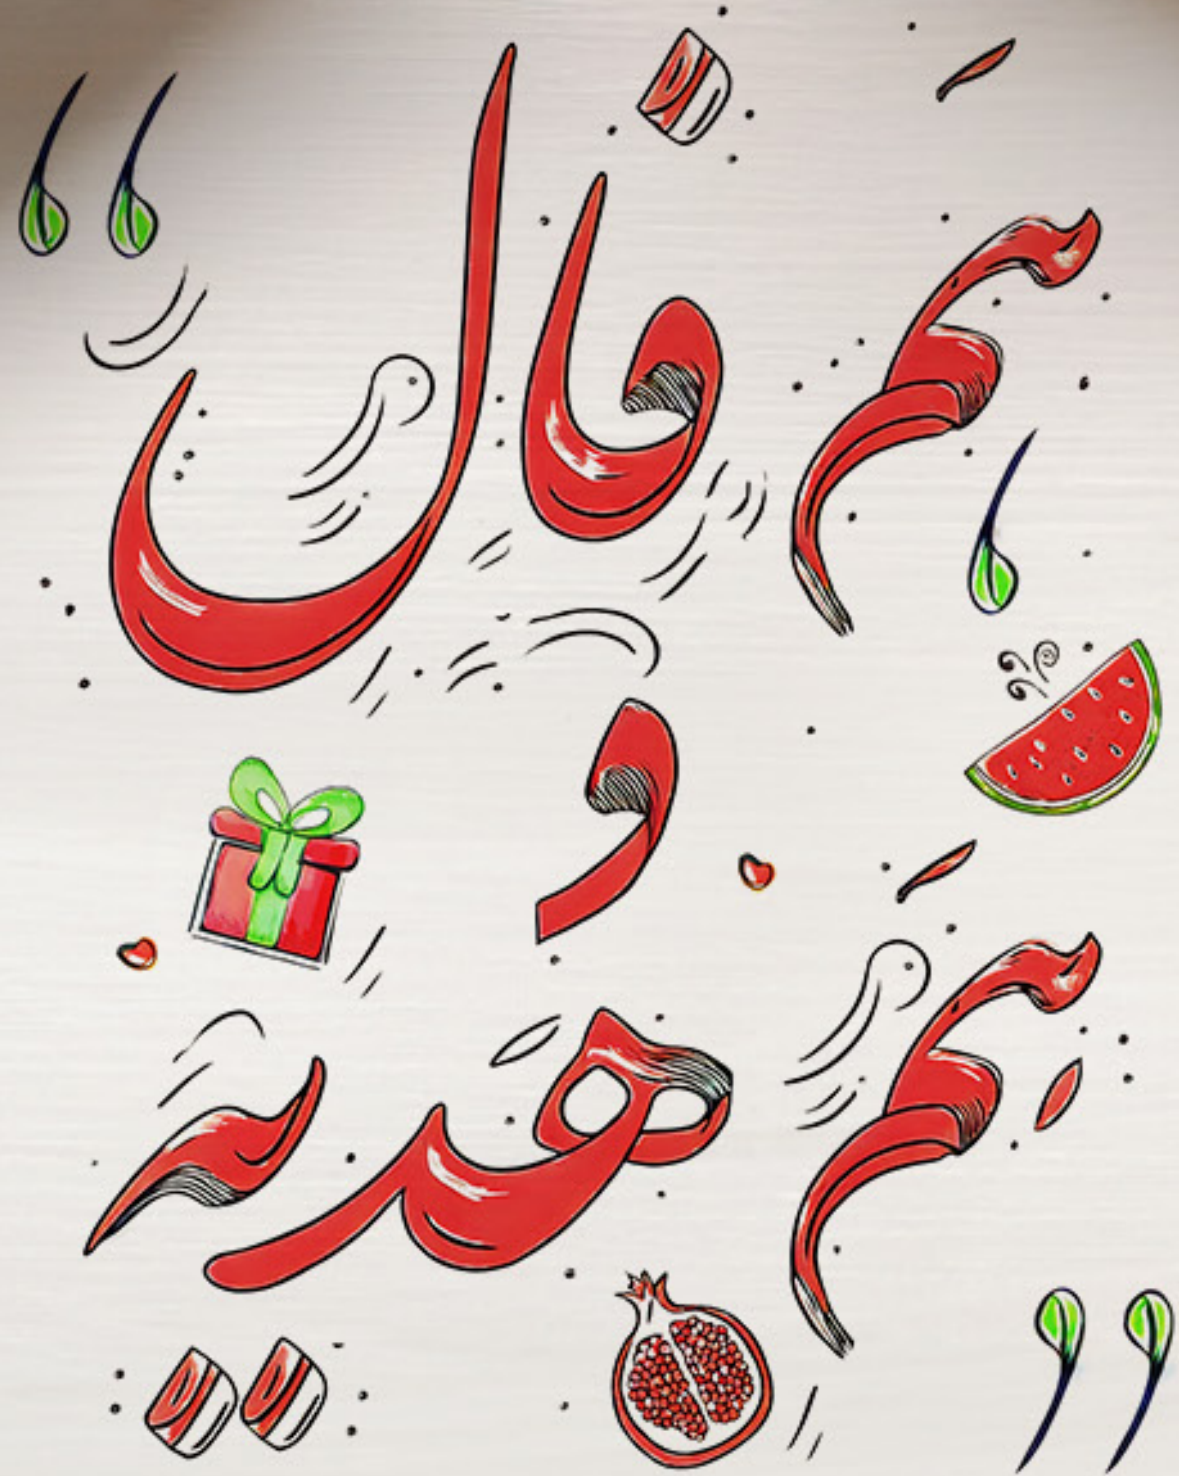 هَم فال
و
هَم هدیه